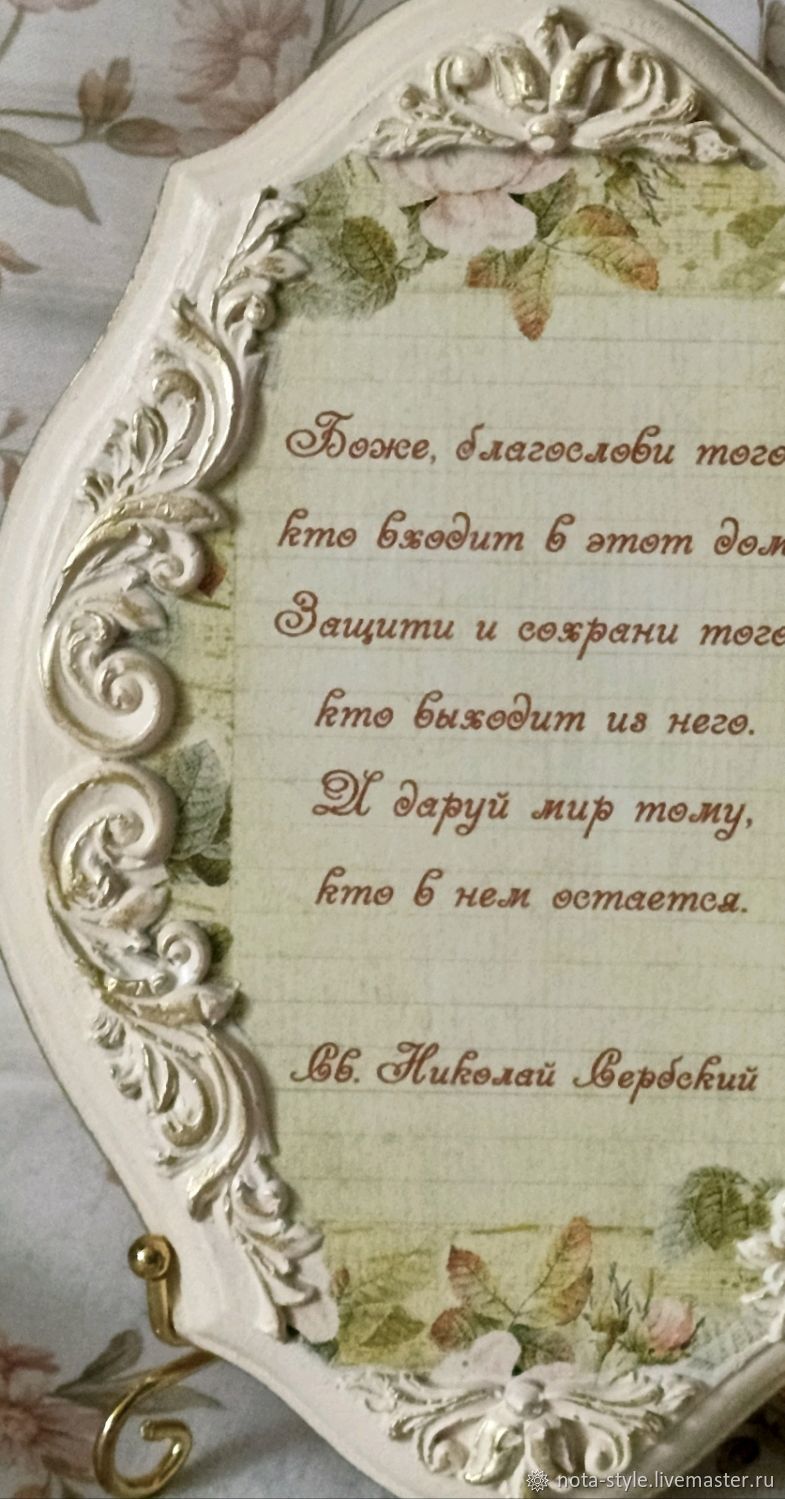 Боже, благослови того
кто входит в этот дом
Защити и сохрани того
кто выходит из него.
И даруй мир тому,
кто в нем остается.
Св. Николай Сербский
nota-style.livemaster.ru